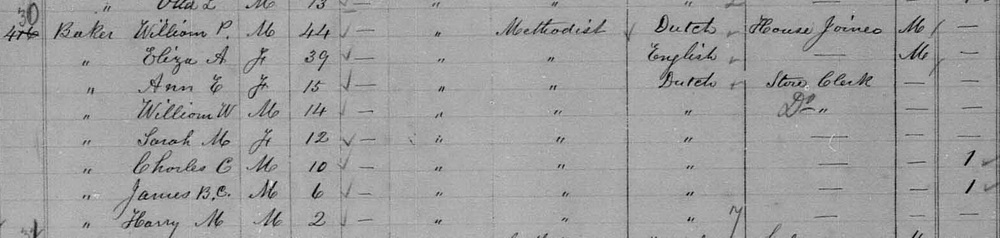 " M 13 —
30
Baker William P. M 44 — " Methodist Dutch House Joiner M
" Eliza A F 39 — " " English — M
" Ann E F 15 — " " Dutch Store Clerk —
" William W M 14 — " " " Do " —
" Sarah M F 12 — " " " — —
" Charles C M 10 — " " " — — 1
" James B.C. M 6 — " " " — — 1
" Harry M M 2 — " " " 7 — —